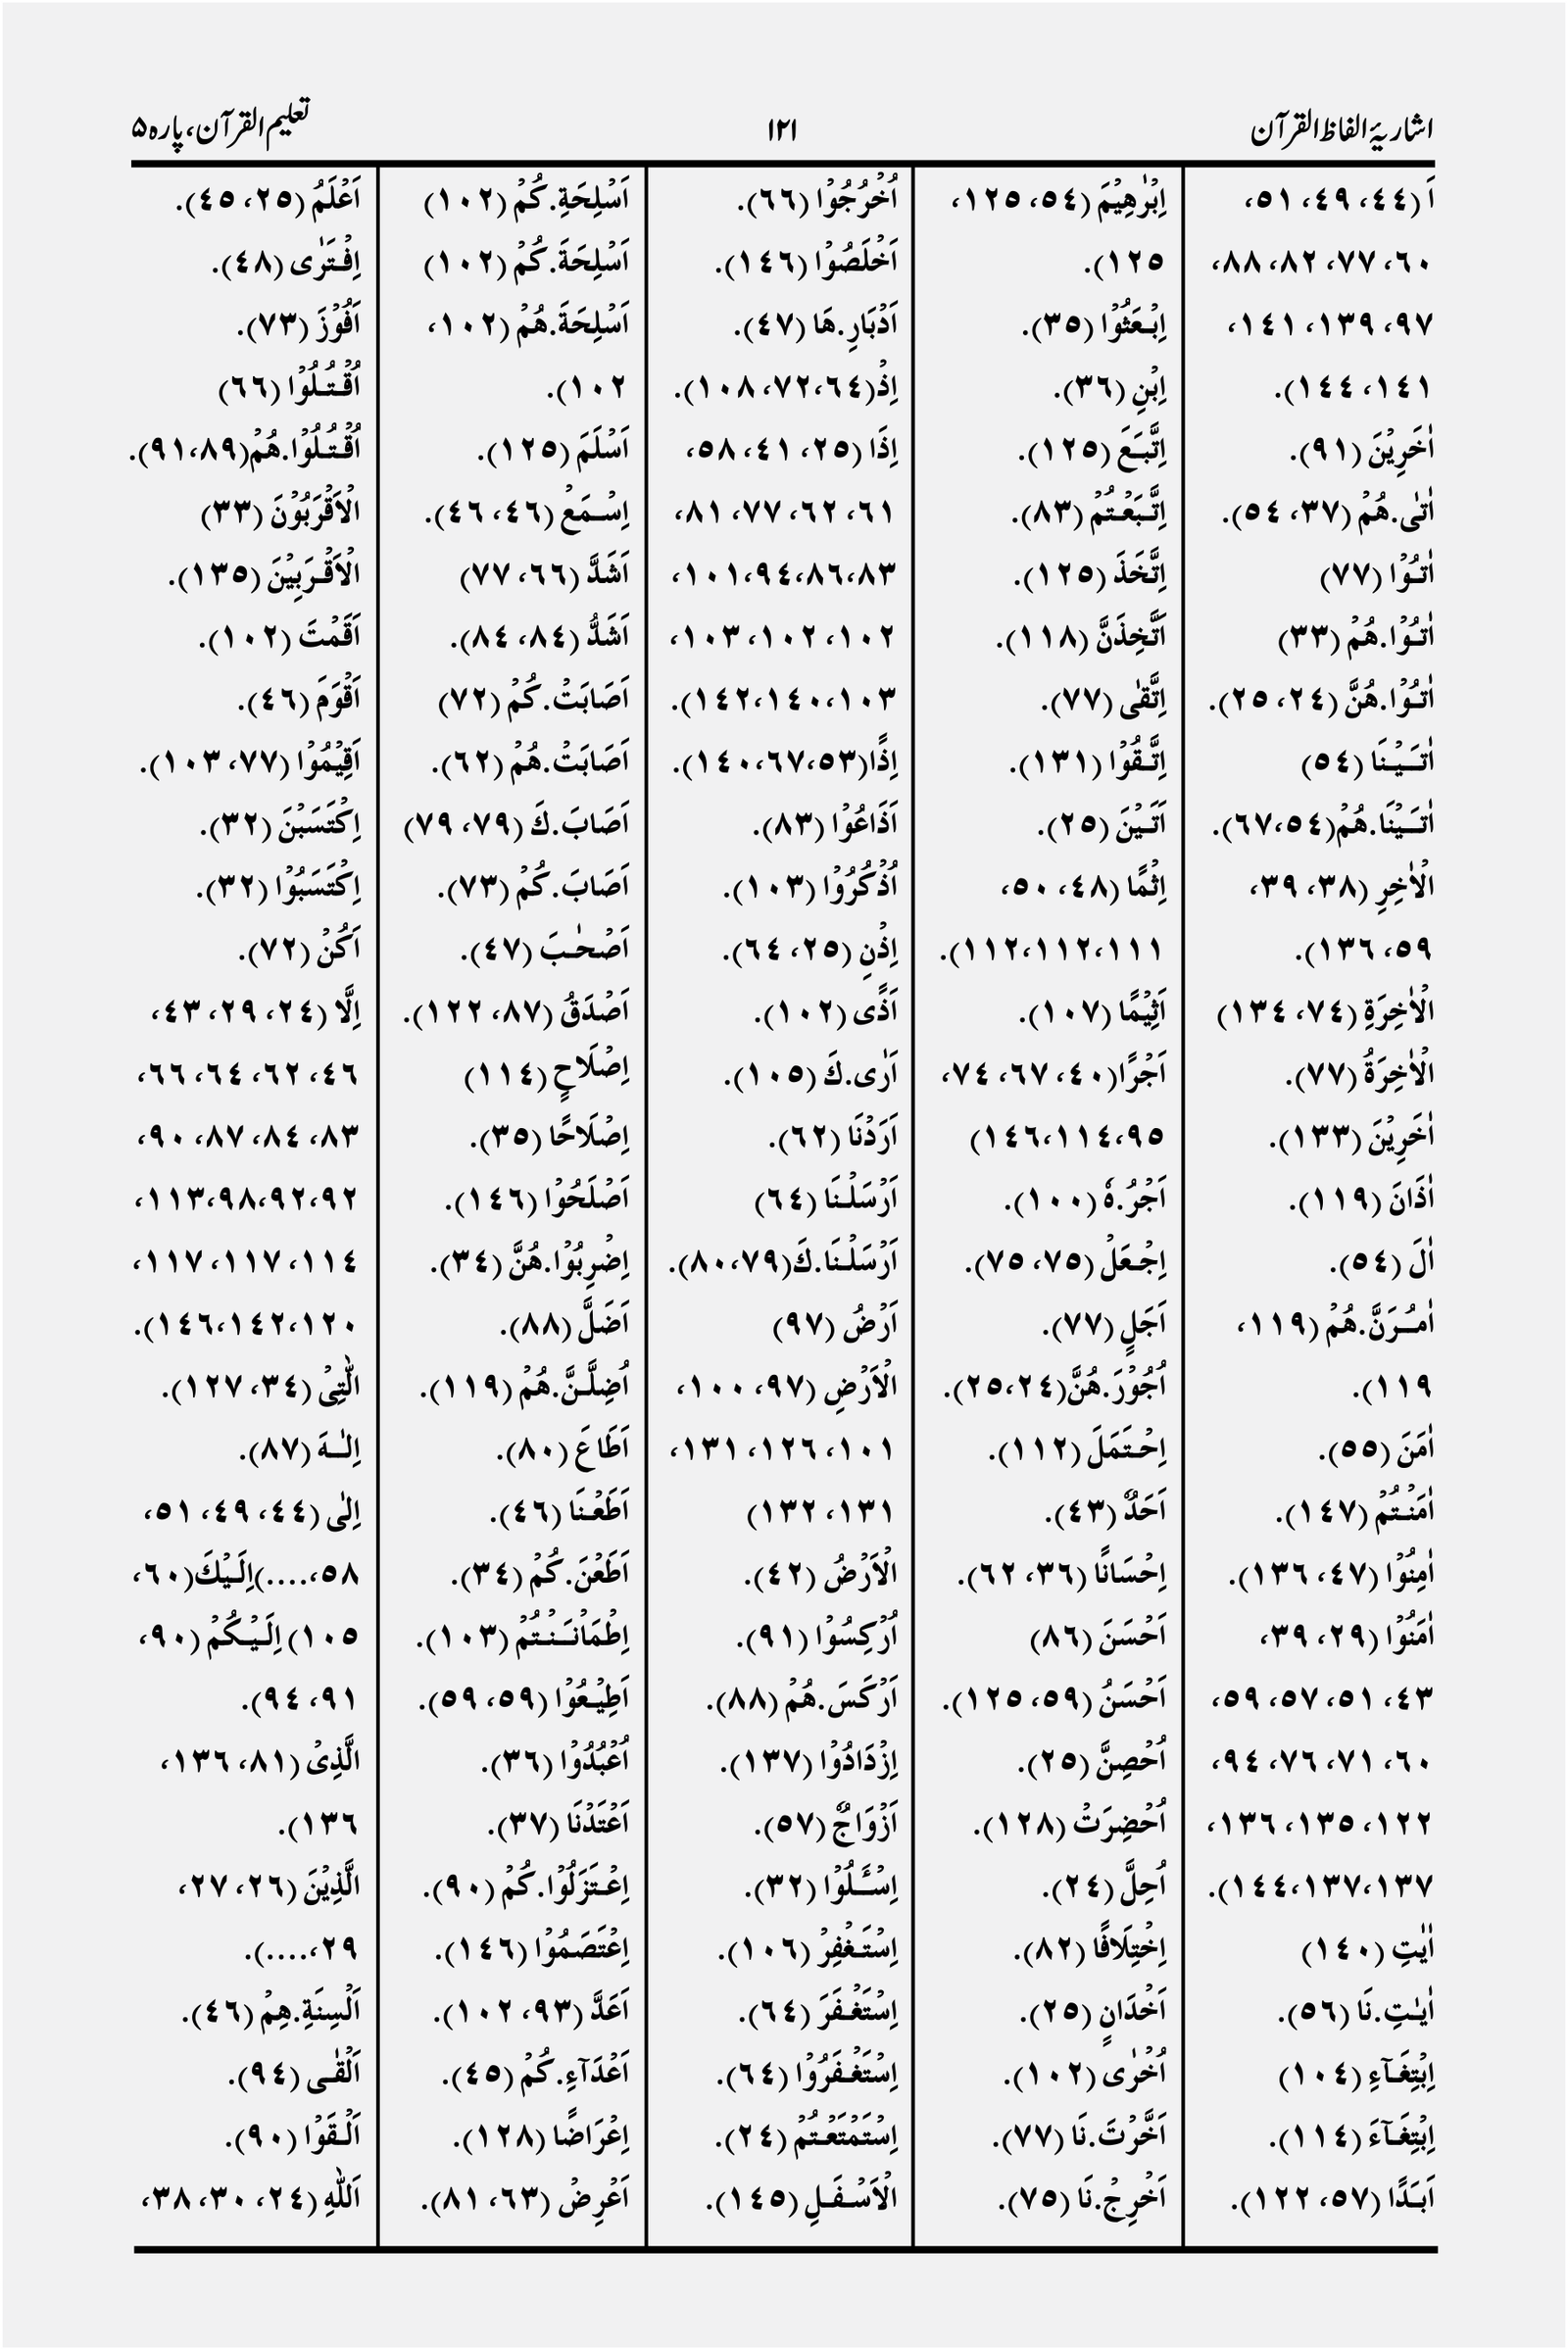 اشاریۂ الفاظ القرآن
۱۲۱
تعلیم القرآن، پارہ ۵
اَ (٤٤، ٤٩، ٥١،
٦٠، ٧٧، ٨٢، ٨٨،
٩٧، ١٣٩، ١٤١،
١٤١، ١٤٤).
اٰخَرِيْنَ (٩١).
اٰتٰى.هُمْ (٣٧، ٥٤).
اٰتُوْا (٧٧)
اٰتُوْا.هُمْ (٣٣)
اٰتُوْا.هُنَّ (٢٤، ٢٥).
اٰتَيْنَا (٥٤)
اٰتَيْنَا.هُمْ(٥٤،٦٧).
الْاٰخِرِ (٣٨، ٣٩،
٥٩، ١٣٦).
الْاٰخِرَةِ (٧٤، ١٣٤)
الْاٰخِرَةُ (٧٧).
اٰخَرِيْنَ (١٣٣).
اٰذَانَ (١١٩).
اٰلَ (٥٤).
اٰمُرَنَّ.هُمْ (١١٩،
١١٩).
اٰمَنَ (٥٥).
اٰمَنْتُمْ (١٤٧).
اٰمِنُوْا (٤٧، ١٣٦).
اٰمَنُوْا (٢٩، ٣٩،
٤٣، ٥١، ٥٧، ٥٩،
٦٠، ٧١، ٧٦، ٩٤،
١٢٢، ١٣٥، ١٣٦،
١٣٧،١٣٧،١٤٤).
اٰيٰتِ (١٤٠)
اٰيٰتِ.نَا (٥٦).
اِبْتِغَآءِ (١٠٤)
اِبْتِغَآءَ (١١٤).
اَبَدًا (٥٧، ١٢٢).
اِبْرٰهِيْمَ (٥٤، ١٢٥،
١٢٥).
اِبْعَثُوْا (٣٥).
اِبْنِ (٣٦).
اِتَّبَعَ (١٢٥).
اِتَّبَعْتُمْ (٨٣).
اِتَّخَذَ (١٢٥).
اَتَّخِذَنَّ (١١٨).
اِتَّقٰى (٧٧).
اِتَّقُوْا (١٣١).
اَتَيْنَ (٢٥).
اِثْمًا (٤٨، ٥٠،
١١١،١١٢،١١٢).
اَثِيْمًا (١٠٧).
اَجْرًا(٤٠، ٦٧، ٧٤،
٩٥،١١٤،١٤٦)
اَجْرُ.هٗ (١٠٠).
اِجْعَلْ (٧٥، ٧٥).
اَجَلٍ (٧٧).
اُجُوْرَ.هُنَّ(٢٤،٢٥).
اِحْتَمَلَ (١١٢).
اَحَدٌ (٤٣).
اِحْسَانًا (٣٦، ٦٢).
اَحْسَنَ (٨٦)
اَحْسَنُ (٥٩، ١٢٥).
اُحْصِنَّ (٢٥).
اُحْضِرَتْ (١٢٨).
اُحِلَّ (٢٤).
اِخْتِلَافًا (٨٢).
اَخْدَانٍ (٢٥).
اُخْرٰى (١٠٢).
اَخَّرْتَ.نَا (٧٧).
اَخْرِجْ.نَا (٧٥).
اُخْرُجُوْا (٦٦).
اَخْلَصُوْا (١٤٦).
اَدْبَارِ.هَا (٤٧).
اِذْ(٦٤،٧٢، ١٠٨).
اِذَا (٢٥، ٤١، ٥٨،
٦١، ٦٢، ٧٧، ٨١،
٨٣،٨٦،٩٤،١٠١،
١٠٢، ١٠٢، ١٠٣،
١٠٣،١٤٠،١٤٢).
اِذًا(٥٣،٦٧،١٤٠).
اَذَاعُوْا (٨٣).
اُذْكُرُوْا (١٠٣).
اِذْنِ (٢٥، ٦٤).
اَذًى (١٠٢).
اَرٰى.كَ (١٠٥).
اَرَدْنَا (٦٢).
اَرْسَلْنَا (٦٤)
اَرْسَلْنَا.كَ(٧٩،٨٠).
اَرْضُ (٩٧)
الْاَرْضِ (٩٧، ١٠٠،
١٠١، ١٢٦، ١٣١،
١٣١، ١٣٢)
الْاَرْضُ (٤٢).
اُرْكِسُوْا (٩١).
اَرْكَسَ.هُمْ (٨٨).
اِزْدَادُوْا (١٣٧).
اَزْوَاجٌ (٥٧).
اِسْـَٔلُوْا (٣٢).
اِسْتَغْفِرْ (١٠٦).
اِسْتَغْفَرَ (٦٤).
اِسْتَغْفَرُوْا (٦٤).
اِسْتَمْتَعْتُمْ (٢٤).
الْاَسْفَلِ (١٤٥).
اَسْلِحَةِ.كُمْ (١٠٢)
اَسْلِحَةَ.كُمْ (١٠٢)
اَسْلِحَةَ.هُمْ (١٠٢،
١٠٢).
اَسْلَمَ (١٢٥).
اِسْمَعْ (٤٦، ٤٦).
اَشَدَّ (٦٦، ٧٧)
اَشَدُّ (٨٤، ٨٤).
اَصَابَتْ.كُمْ (٧٢)
اَصَابَتْ.هُمْ (٦٢).
اَصَابَ.كَ (٧٩، ٧٩)
اَصَابَ.كُمْ (٧٣).
اَصْحٰبَ (٤٧).
اَصْدَقُ (٨٧، ١٢٢).
اِصْلَاحٍ (١١٤)
اِصْلَاحًا (٣٥).
اَصْلَحُوْا (١٤٦).
اِضْرِبُوْا.هُنَّ (٣٤).
اَضَلَّ (٨٨).
اُضِلَّنَّ.هُمْ (١١٩).
اَطَاعَ (٨٠).
اَطَعْنَا (٤٦).
اَطَعْنَ.كُمْ (٣٤).
اِطْمَاْنَنْتُمْ (١٠٣).
اَطِيْعُوْا (٥٩، ٥٩).
اُعْبُدُوْا (٣٦).
اَعْتَدْنَا (٣٧).
اِعْتَزَلُوْا.كُمْ (٩٠).
اِعْتَصَمُوْا (١٤٦).
اَعَدَّ (٩٣، ١٠٢).
اَعْدَآءِ.كُمْ (٤٥).
اِعْرَاضًا (١٢٨).
اَعْرِضْ (٦٣، ٨١).
اَعْلَمُ (٢٥، ٤٥).
اِفْتَرٰى (٤٨).
اَفُوْزَ (٧٣).
اُقْتُلُوْا (٦٦)
اُقْتُلُوْا.هُمْ(٨٩،٩١).
الْاَقْرَبُوْنَ (٣٣)
الْاَقْرَبِيْنَ (١٣٥).
اَقَمْتَ (١٠٢).
اَقْوَمَ (٤٦).
اَقِيْمُوْا (٧٧، ١٠٣).
اِكْتَسَبْنَ (٣٢).
اِكْتَسَبُوْا (٣٢).
اَكُنْ (٧٢).
اِلَّا (٢٤، ٢٩، ٤٣،
٤٦، ٦٢، ٦٤، ٦٦،
٨٣، ٨٤، ٨٧، ٩٠،
٩٢،٩٢،٩٨،١١٣،
١١٤، ١١٧، ١١٧،
١٢٠،١٤٢،١٤٦).
الّٰتِيْ (٣٤، ١٢٧).
اِلٰهَ (٨٧).
اِلٰى (٤٤، ٤٩، ٥١،
٥٨،....)اِلَيْكَ(٦٠،
١٠٥) اِلَيْكُمْ (٩٠،
٩١، ٩٤).
الَّذِيْ (٨١، ١٣٦،
١٣٦).
الَّذِيْنَ (٢٦، ٢٧،
٢٩،....).
اَلْسِنَةِ.هِمْ (٤٦).
اَلْقٰى (٩٤).
اَلْقَوْا (٩٠).
اَللّٰهِ (٢٤، ٣٠، ٣٨،